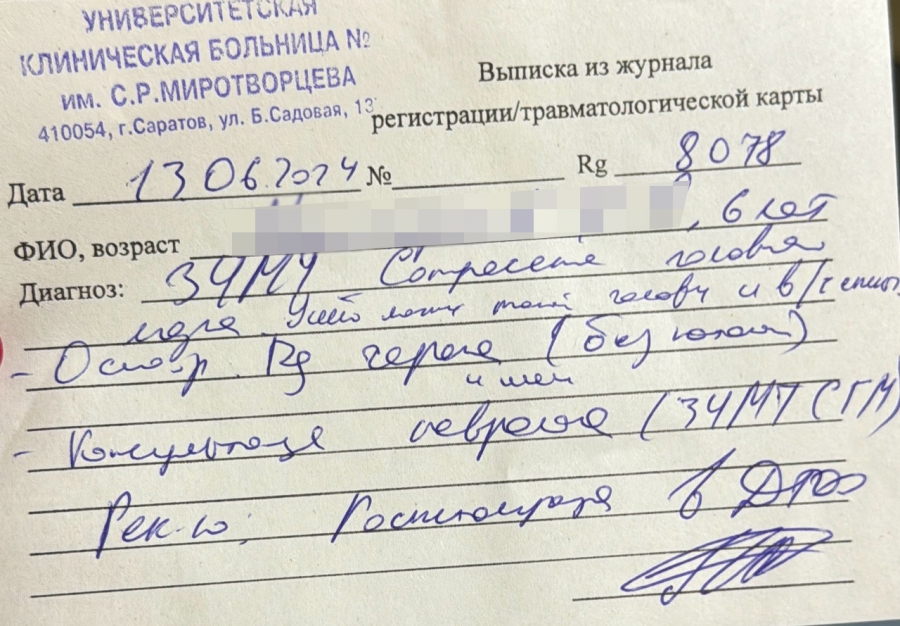 УНИВЕРСИТЕТСКАЯ
КЛИНИЧЕСКАЯ БОЛЬНИЦА №
им. С.Р.МИРОТВОРЦЕВА
410054, г.Саратов, ул. Б.Садовая, 13
Выписка из журнала
регистрации/травматологической карты
Дата 13 06.2024 № Rg 8078
ФИО, возраст , 6 лет
Диагноз: ЗЧМТ Сотрясение головного
мозга. Ушиб мягких тканей головы и
- Осмотр. Rg черепа (без
и шеи
- Консультация невролога (ЗЧМТ СГМ)
Рек-но: Госпитализация в